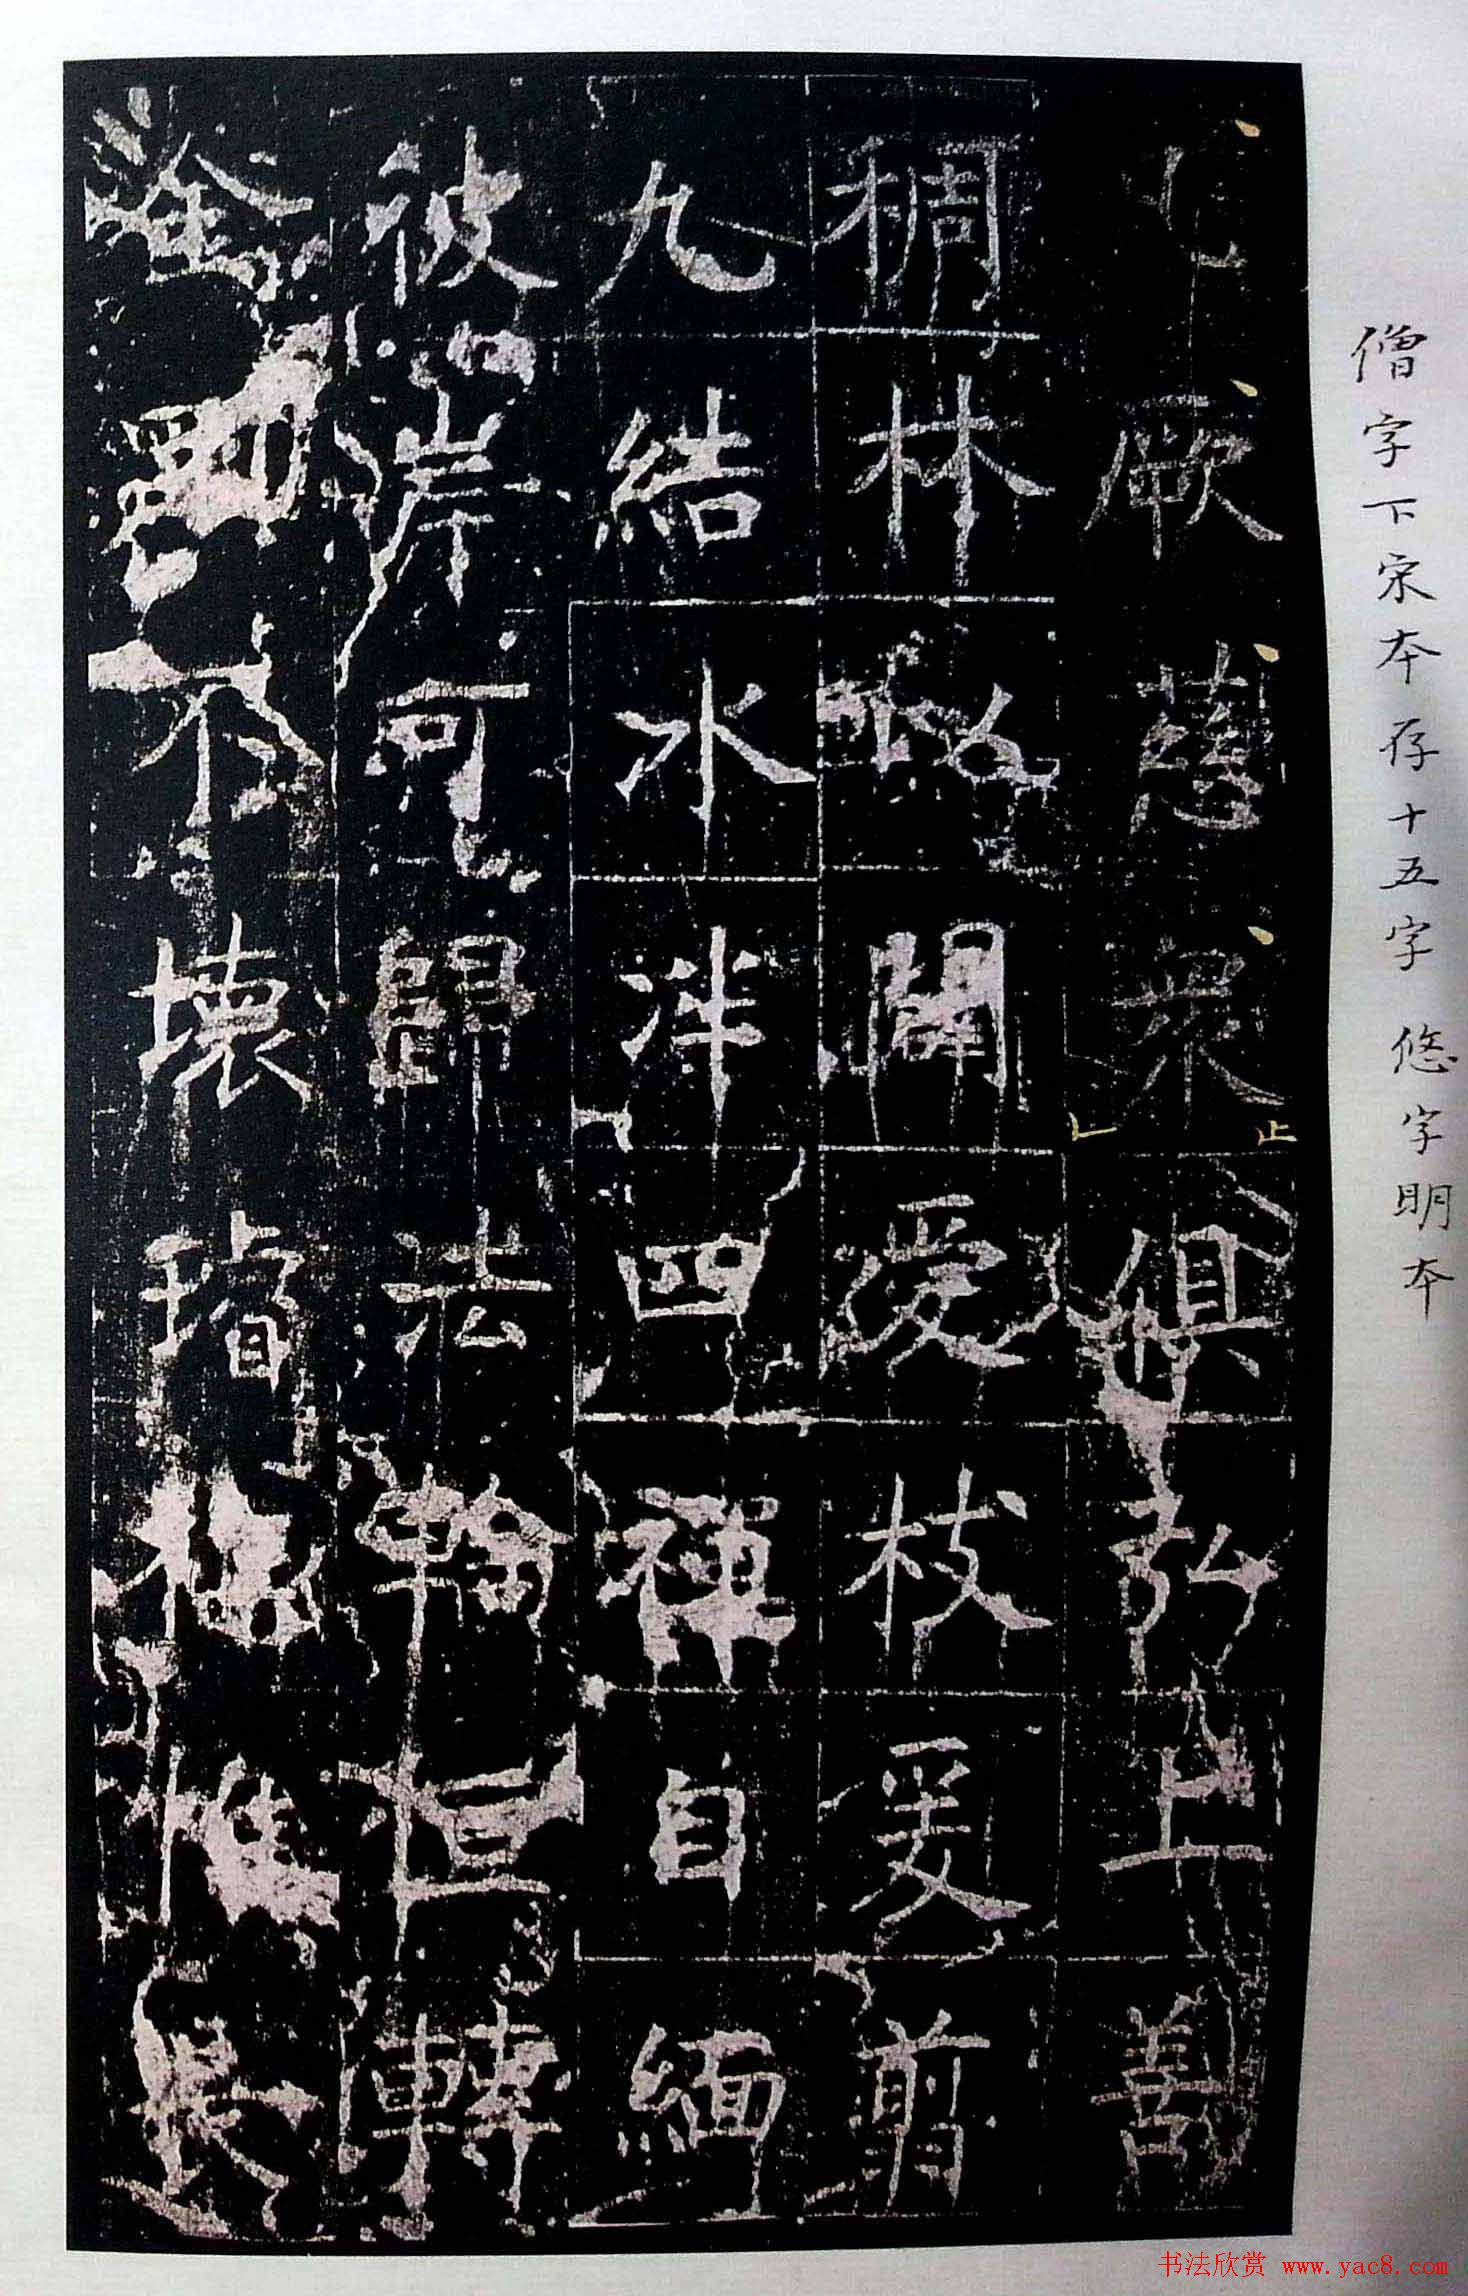 僧字下宋本存十五字 悠字明本
厥慈眾俱弘上善
稠林開愛枝爰剪
九結水泮四禪自緬
彼岸可歸法輪恒轉
不壞璿惟長
书法欣赏 www.yac8.com